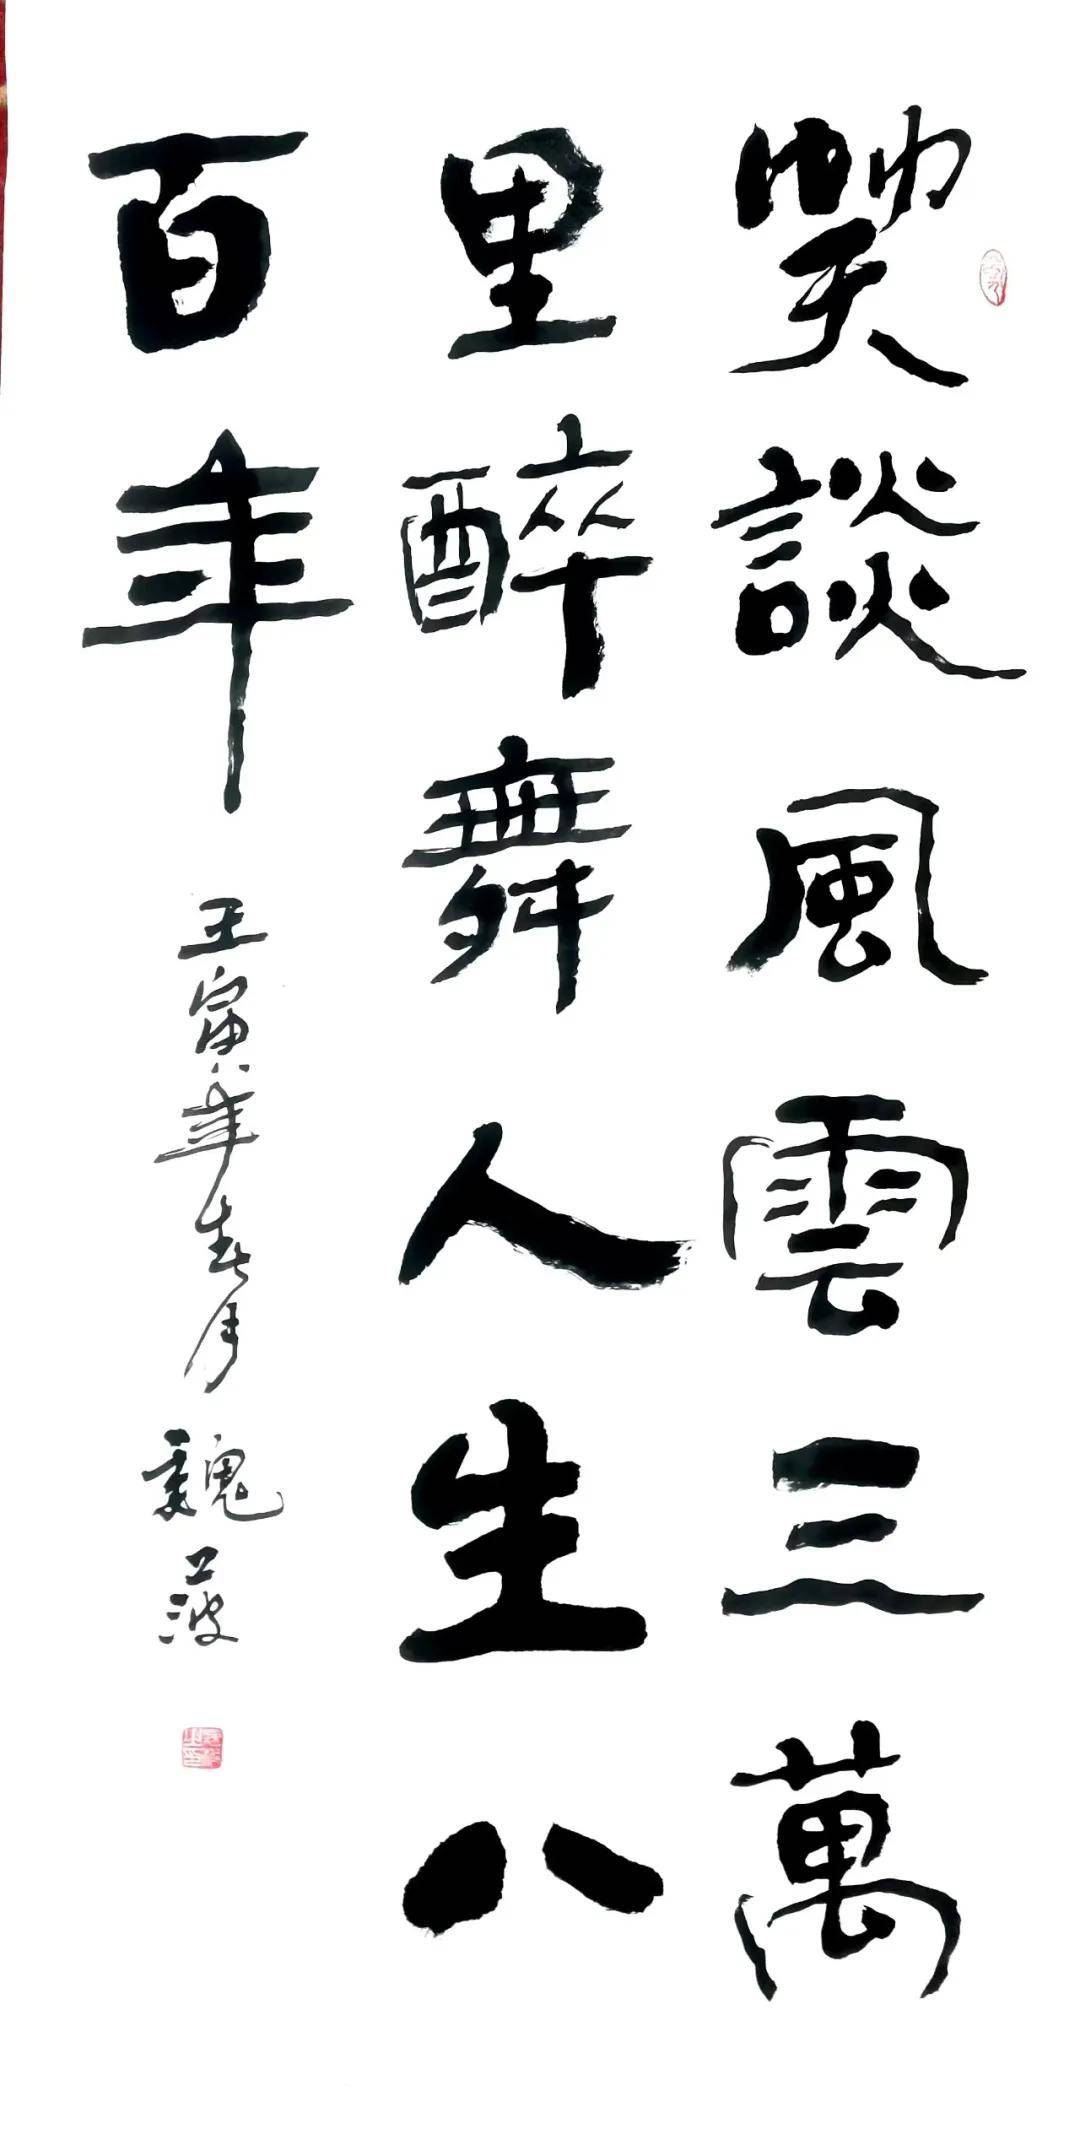 笑談風雲三萬
里醉舞人生八
百年
壬寅年春月
魏菠